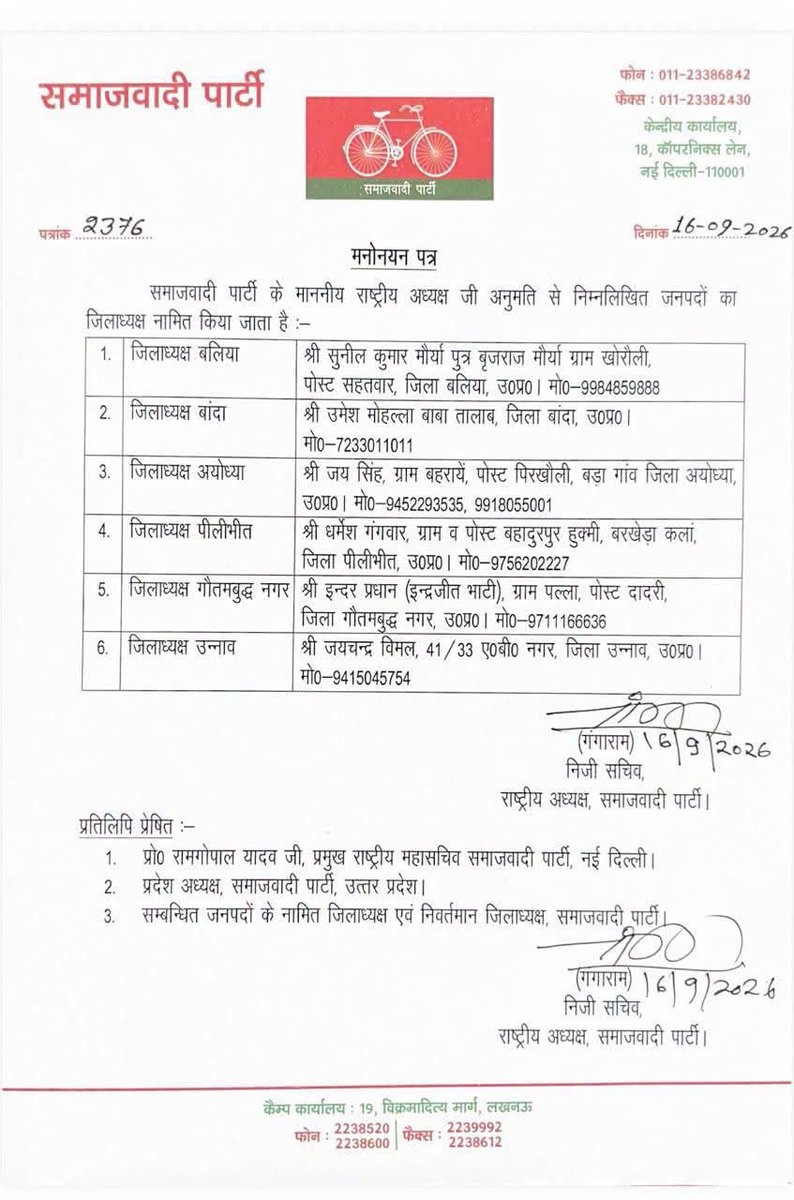 समाजवादी पार्टी
समाजवादी पार्टी
फोन : 011-23386842
फैक्स : 011-23382430
केन्द्रीय कार्यालय,
18, कॉपरनिक्स लेन,
नई दिल्ली-110001
पत्रांक 2376
दिनांक 16-09-2026
मनोनयन पत्र
समाजवादी पार्टी के माननीय राष्ट्रीय अध्यक्ष जी अनुमति से निम्नलिखित जनपदों का
जिलाध्यक्ष नामित किया जाता है :–
1. जिलाध्यक्ष बलिया श्री सुनील कुमार मौर्या पुत्र बृजराज मौर्या ग्राम खोरौली,
पोस्ट सहतवार, जिला बलिया, उ0प्र0। मो0–9984859888
2. जिलाध्यक्ष बांदा श्री उमेश मोहल्ला बाबा तालाब, जिला बांदा, उ0प्र0।
मो0–7233011011
3. जिलाध्यक्ष अयोध्या श्री जय सिंह, ग्राम बहरायें, पोस्ट पिरखौली, बड़ा गांव जिला अयोध्या,
उ0प्र0। मो0–9452293535, 9918055001
4. जिलाध्यक्ष पीलीभीत श्री धर्मेश गंगवार, ग्राम व पोस्ट बहादुरपुर हुक्मी, बरखेड़ा कलां,
जिला पीलीभीत, उ0प्र0। मो0–9756202227
5. जिलाध्यक्ष गौतमबुद्ध नगर श्री इन्दर प्रधान (इन्द्रजीत भाटी), ग्राम पल्ला, पोस्ट दादरी,
जिला गौतमबुद्ध नगर, उ0प्र0। मो0–9711166636
6. जिलाध्यक्ष उन्नाव श्री जयचन्द्र विमल, 41/33 ए0बी0 नगर, जिला उन्नाव, उ0प्र0।
मो0–9415045754
(गंगाराम) 16/9/2026
निजी सचिव,
राष्ट्रीय अध्यक्ष, समाजवादी पार्टी।
प्रतिलिपि प्रेषित :–
1. प्रो0 रामगोपाल यादव जी, प्रमुख राष्ट्रीय महासचिव समाजवादी पार्टी, नई दिल्ली।
2. प्रदेश अध्यक्ष, समाजवादी पार्टी, उत्तर प्रदेश।
3. सम्बन्धित जनपदों के नामित जिलाध्यक्ष एवं निवर्तमान जिलाध्यक्ष, समाजवादी पार्टी।
(गंगाराम) 16/9/2026
निजी सचिव,
राष्ट्रीय अध्यक्ष, समाजवादी पार्टी।
कैम्प कार्यालय : 19, विक्रमादित्य मार्ग, लखनऊ
फोन : 2238520 फैक्स : 2239992
2238600 2238612